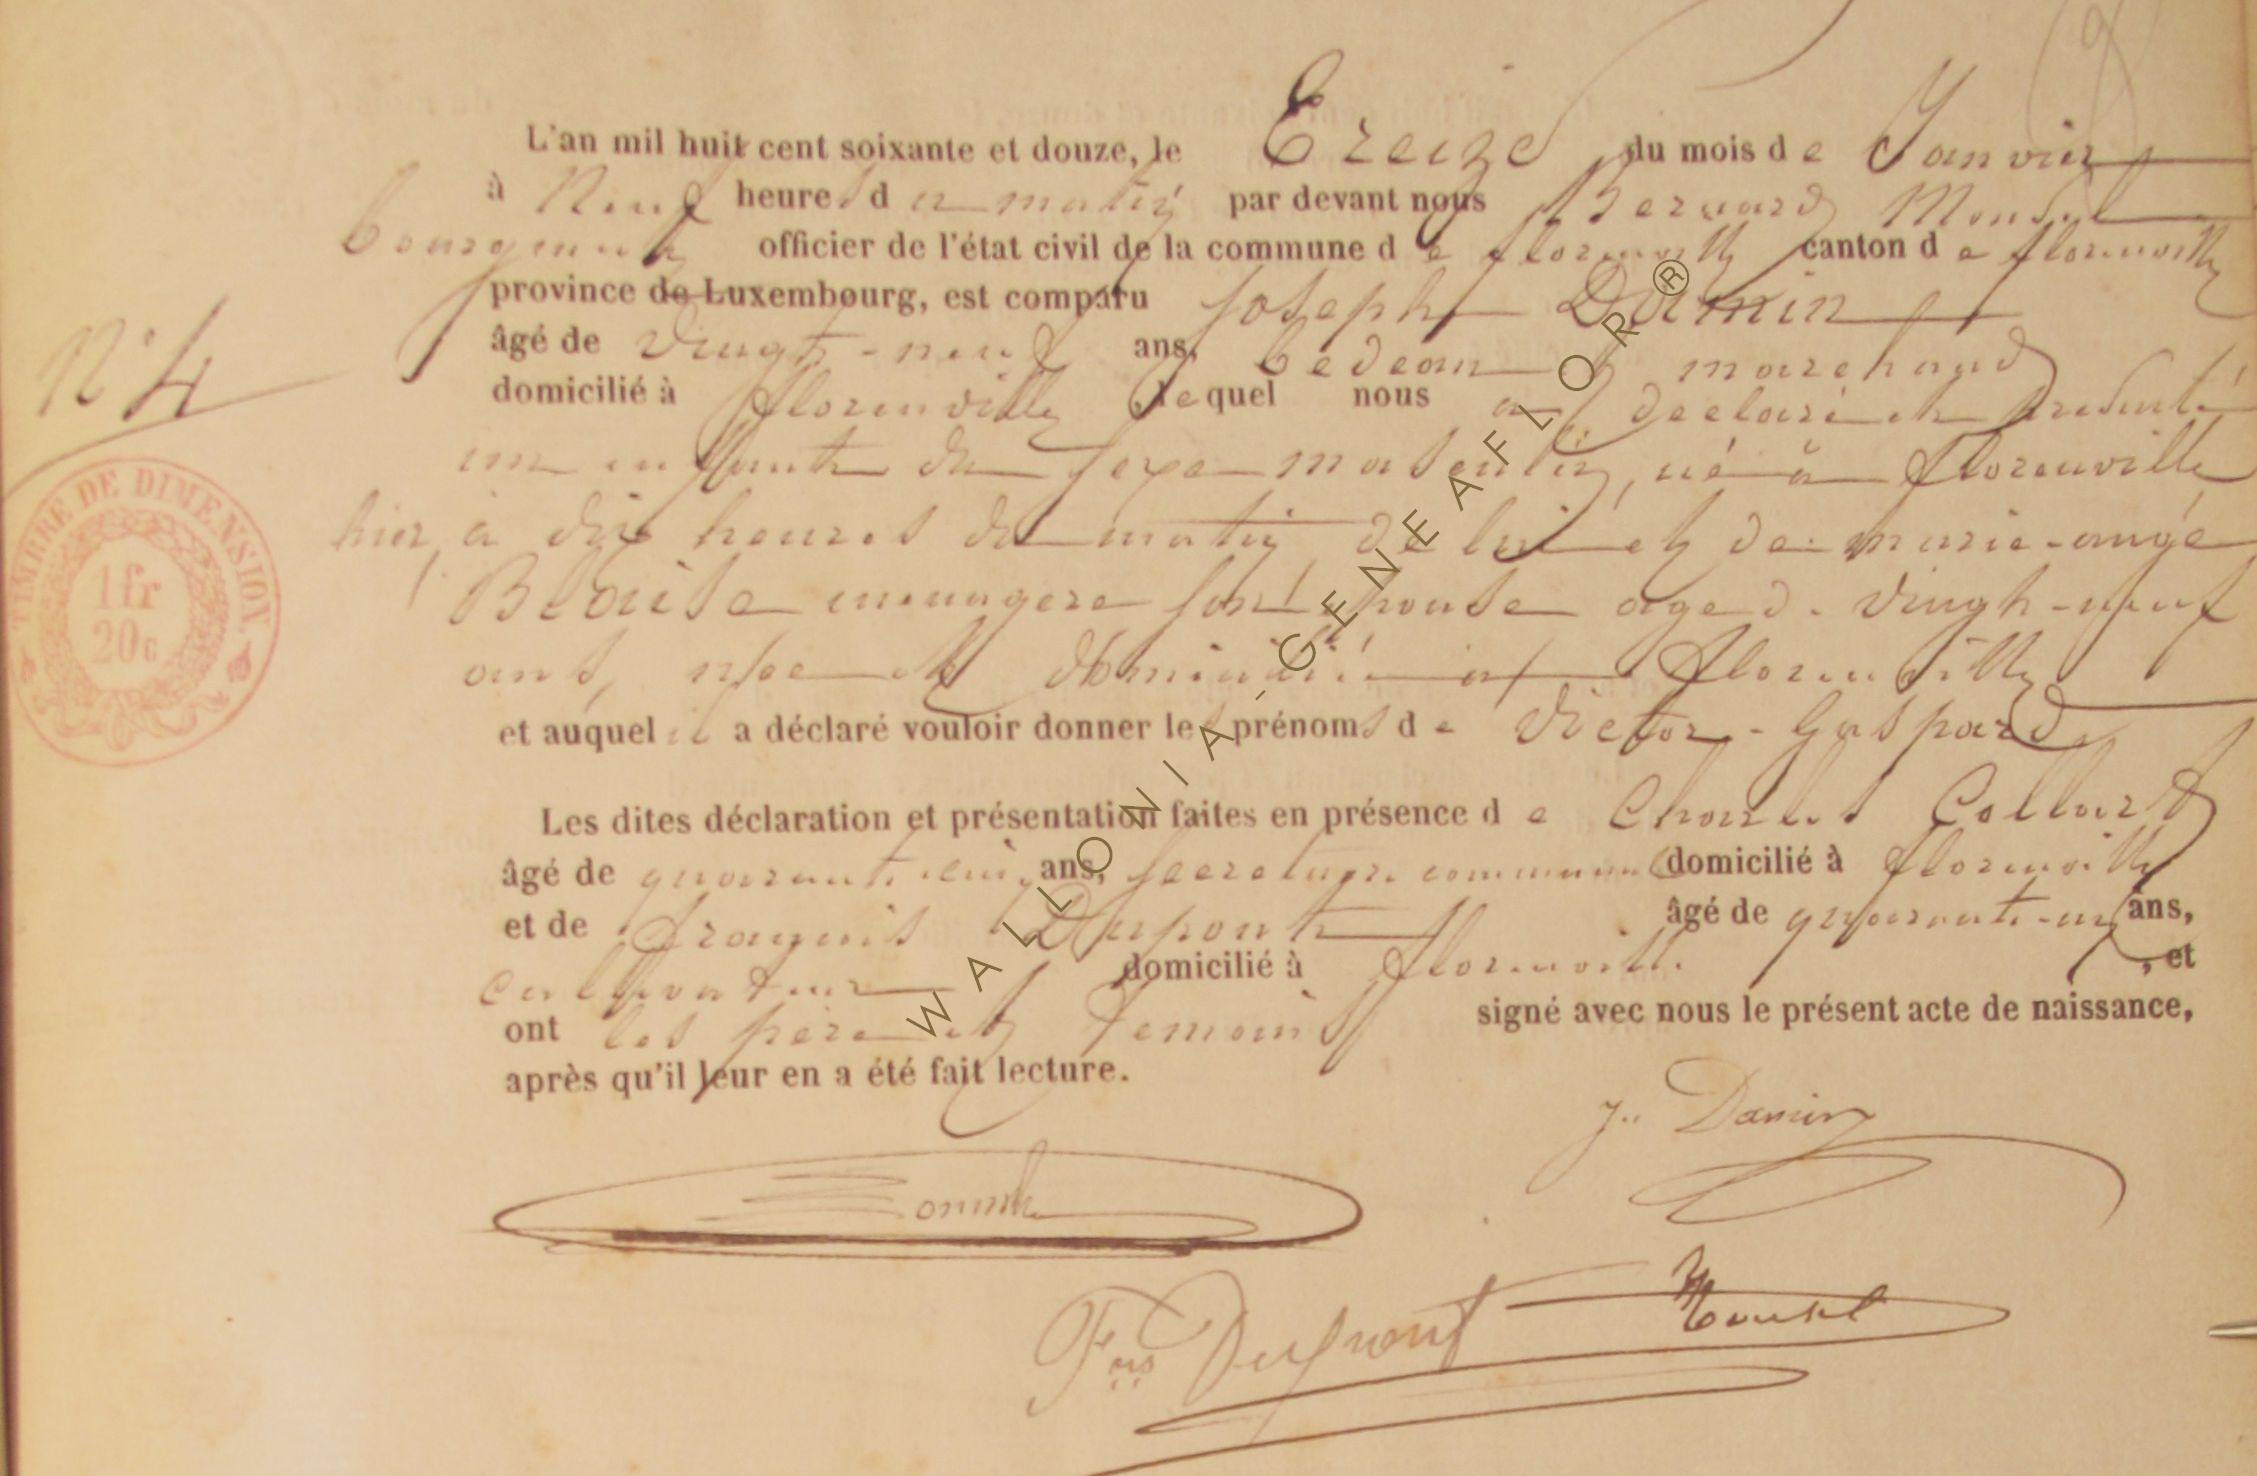 L'an mil huit cent soixante et douze, le Treize du mois de Janvier
à Neuf heures du matin par devant nous Bernard Mousel
bourgmestre officier de l'état civil de la commune de florenville canton de florenville
province de Luxembourg, est comparu Joseph Damin
âgé de vingt-neuf ans, bedeau et marchand
N° 4
domicilié à florenville, lequel nous a déclaré et présenté
un enfant du sexe masculin, né à florenville
hier, à dix heures du matin de lui et de marie-
Blaise menagere son épouse agée de vingt-neuf
ans, née et domiciliée à florenville
et auquel il a déclaré vouloir donner les prénoms de Victor-Gaspard
Les dites déclaration et présentation faites en présence de Charles Collard
âgé de quarante cinq ans, secretaire communal domicilié à florenville
et de françois Dupont âgé de quarante-un ans,
cultivateur domicilié à florenville, et
ont les père et temoins signé avec nous le présent acte de naissance,
après qu'il leur en a été fait lecture.
J. Damin
Fois Dupont Mousel
TIMBRE DE DIMENSION.
1fr
20c
WALLONIA-GENEAFLOR®